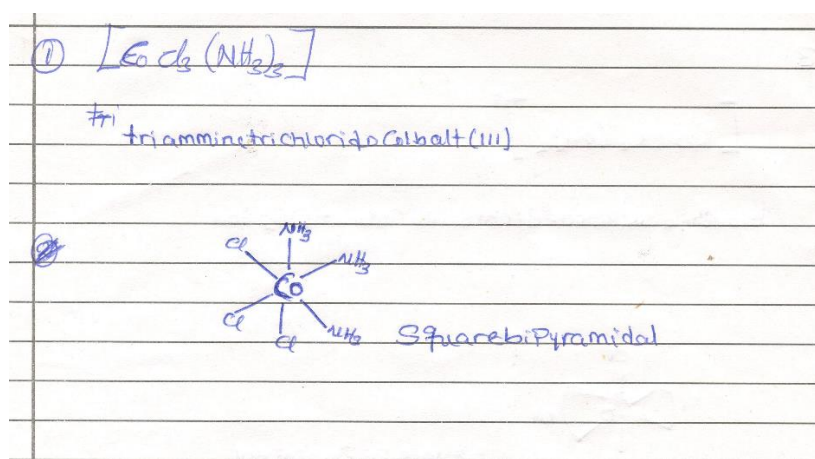 ① [CoCl₃(NH₃)₃]
tri
triamminetrichloridoColbalt(III)
②
NH₃
Cl NH₃
Co
Cl Cl NH₃ SquarebiPyramidal